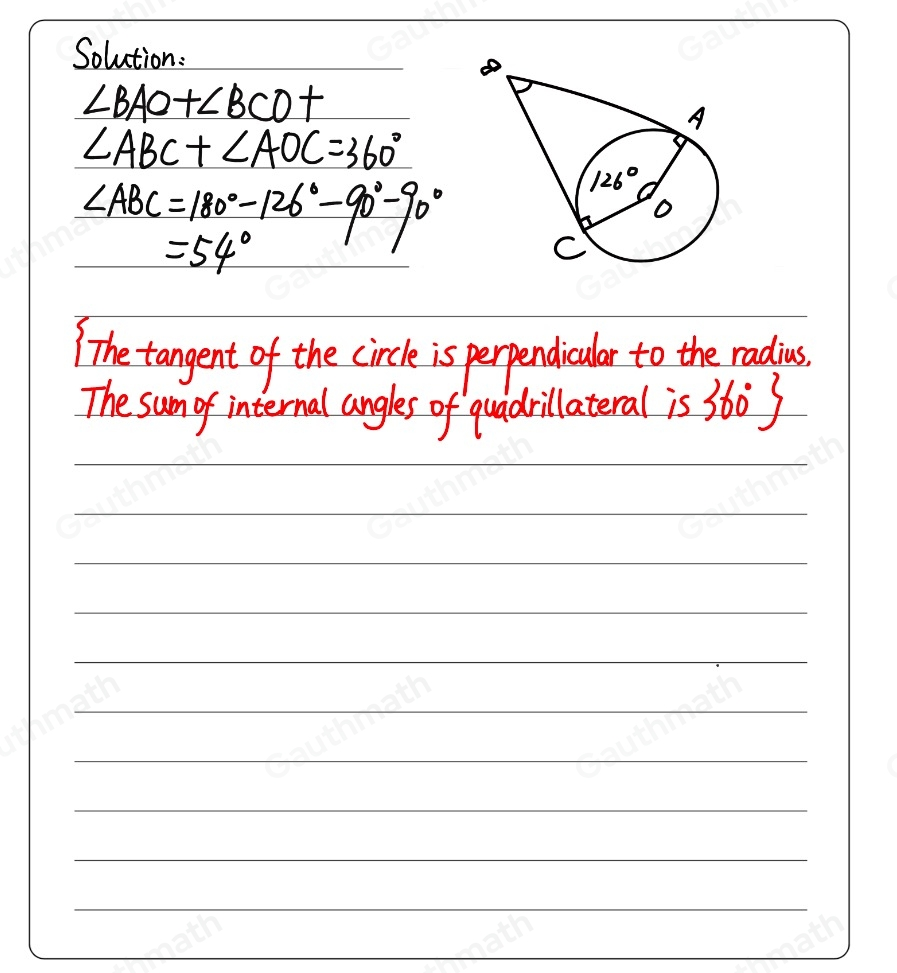 Solution:
∠BAO+∠BCO+
∠ABC+∠AOC=360°
∠ABC=180°-126°-90°-90°
=54°
B
A
126°
O
C
{The tangent of the circle is perpendicular to the radius.
The sum of internal angles of quadrillateral is 360°}
Gauthmath